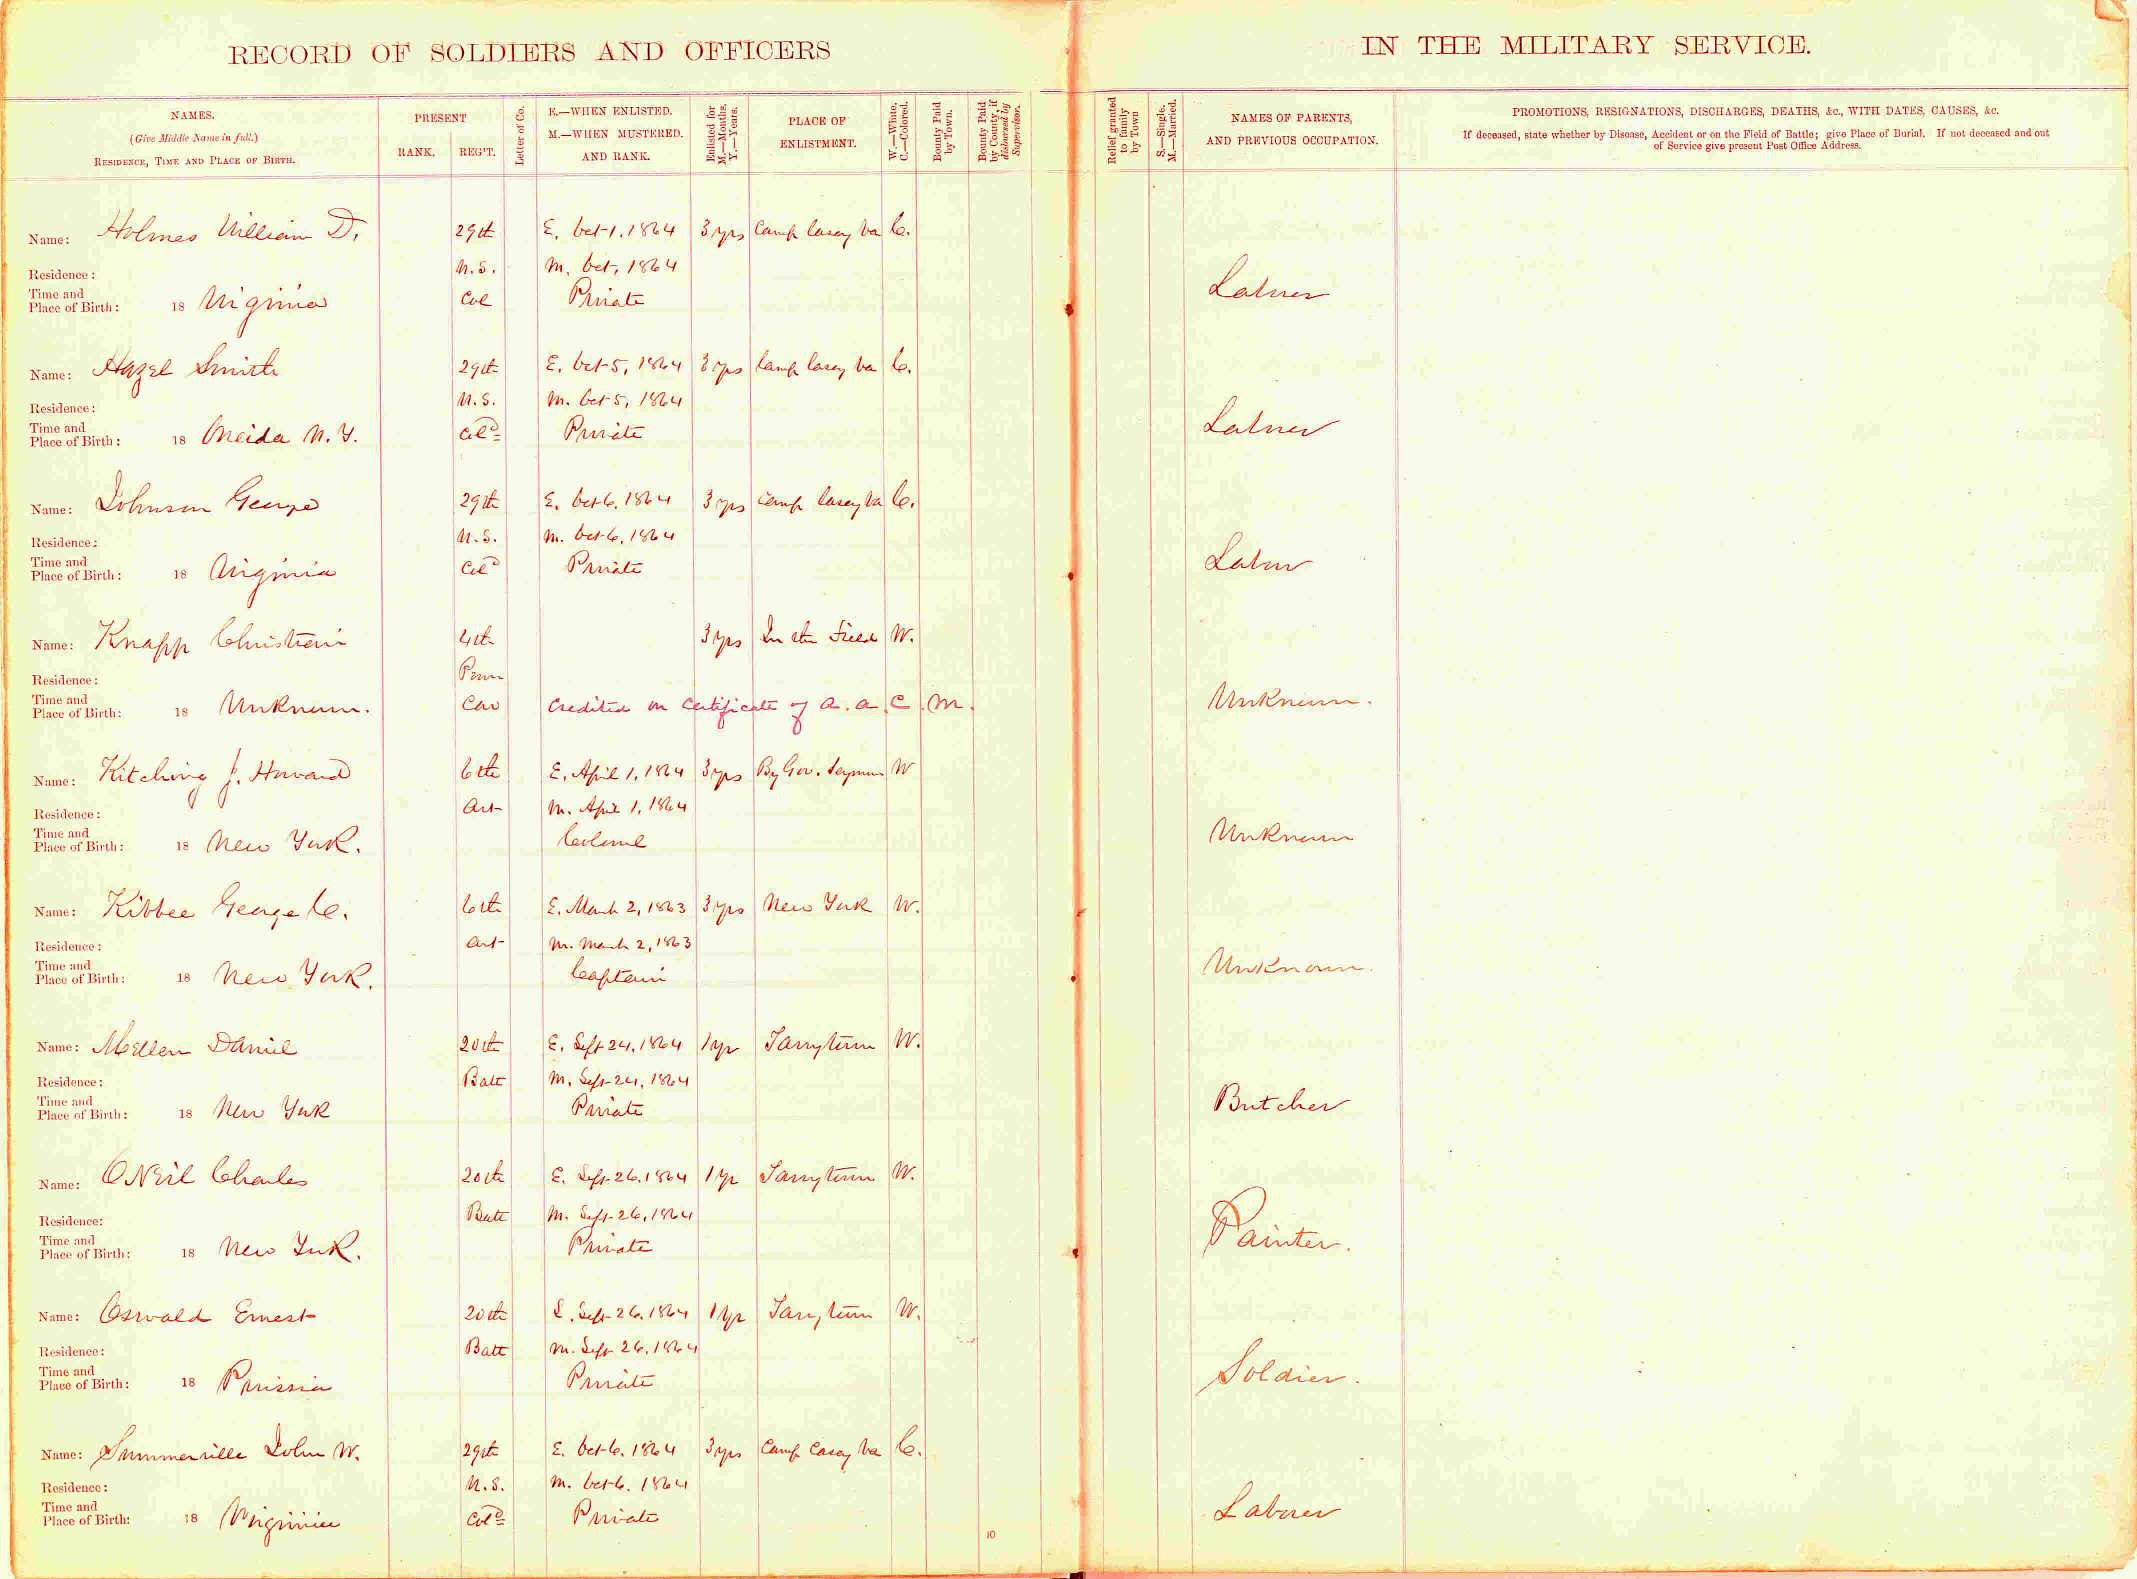 RECORD OF SOLDIERS AND OFFICERS IN THE MILITARY SERVICE.
NAMES.
(Give Middle Name in full.)
RESIDENCE, TIME AND PLACE OF BIRTH.
PRESENT
RANK. REG'T.
Letter of Co.
E.—WHEN ENLISTED.
M.—WHEN MUSTERED.
AND RANK.
Enlisted for
M.—Months.
Y.—Years.
PLACE OF
ENLISTMENT.
W.—White.
C.—Colored.
Bounty Paid
by Town.
Bounty Paid
by County, if
disbursed by
Supervisor.
Relief granted
to family
by Town
S.—Single.
M.—Married.
NAMES OF PARENTS,
AND PREVIOUS OCCUPATION.
PROMOTIONS, RESIGNATIONS, DISCHARGES, DEATHS, &c., WITH DATES, CAUSES, &c.
If deceased, state whether by Disease, Accident or on the Field of Battle; give Place of Burial. If not deceased and out
of Service give present Post Office Address.
Name: Holmes William D. 29th E. Oct 1, 1864 3 yrs Camp Casey Va C.
Residence: U.S. M. Oct, 1864
Time and
Place of Birth: 18 Virginia Col Private Laborer
Name: Hazel Smith 29th E. Oct 5, 1864 3 yrs Camp Casey Va C.
Residence: U.S. M. Oct 5, 1864
Time and
Place of Birth: 18 Oneida N.Y. Cold Private Laborer
Name: Johnson George 29th E. Oct 6, 1864 3 yrs Camp Casey Va C.
Residence: U.S. M. Oct 6, 1864
Time and
Place of Birth: 18 Virginia Cold Private Labor
Name: Knapp Christian 4th 3 yrs In the Field W.
Residence: Penn
Time and
Place of Birth: 18 Unknown. Cav Credited on Certificate of A. A. C. M. Unknown.
Name: Kitching J. Howard 6th E. April 1, 1864 3 yrs By Gov. Seymour W
Residence: Art M. April 1, 1864
Time and
Place of Birth: 18 New York. Colonel Unknown
Name: Kibbee George C. 6th E. March 2, 1863 3 yrs New York W.
Residence: Art M. March 2, 1863
Time and
Place of Birth: 18 New York. Captain Unknown.
Name: Mellen Daniel 20th E. Sept 24, 1864 1 yr Tarrytown W.
Residence: Batt M. Sept 24, 1864
Time and
Place of Birth: 18 New York Private Butcher
Name: ONeil Charles 20th E. Sept 26, 1864 1 yr Tarrytown W.
Residence: Batt M. Sept 26, 1864
Time and
Place of Birth: 18 New York. Private Painter.
Name: Oswald Ernest 20th E. Sept 26, 1864 1 yr Tarrytown W.
Residence: Batt M. Sept 26, 1864
Time and
Place of Birth: 18 Prussia Private Soldier.
Name: Summerville John W. 29th E. Oct 6, 1864 3 yrs Camp Casey Va C.
Residence: U.S. M. Oct 6, 1864
Time and
Place of Birth: 18 Virginia Cold Private Laborer
10